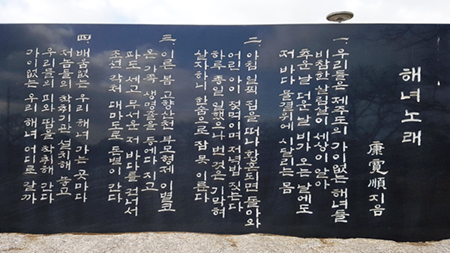 해녀노래
康寬順 지음
一. 우리들은 제주도의 가이없는 해녀들
비참한 살림살이 세상이 알아
추운 날 더운 날 비가 오는 날에도
저 바다 물결위에 시달리는 몸
二. 아침 일찍 집을 떠나 황혼되면 돌아와
어린 아이 젖먹이며 저녁밥 짓는다
하루 종일 일했으나 번 것은 기막혀
살자하니 한숨으로 잠 못 이룬다
三. 이른 봄 고향산천 부모형제 이별코
온 가족 생명줄을 등에다 지고
파도 세고 무서운 저 바다를 건너서
조선 각처 대마도로 돈벌이 간다
四. 배움 없는 우리 해녀 가는 곳마다
저놈들의 착취기관 설치해 놓고
우리들의 피와 땀을 착취해 간다
가이없는 우리 해녀 어디로 갈까